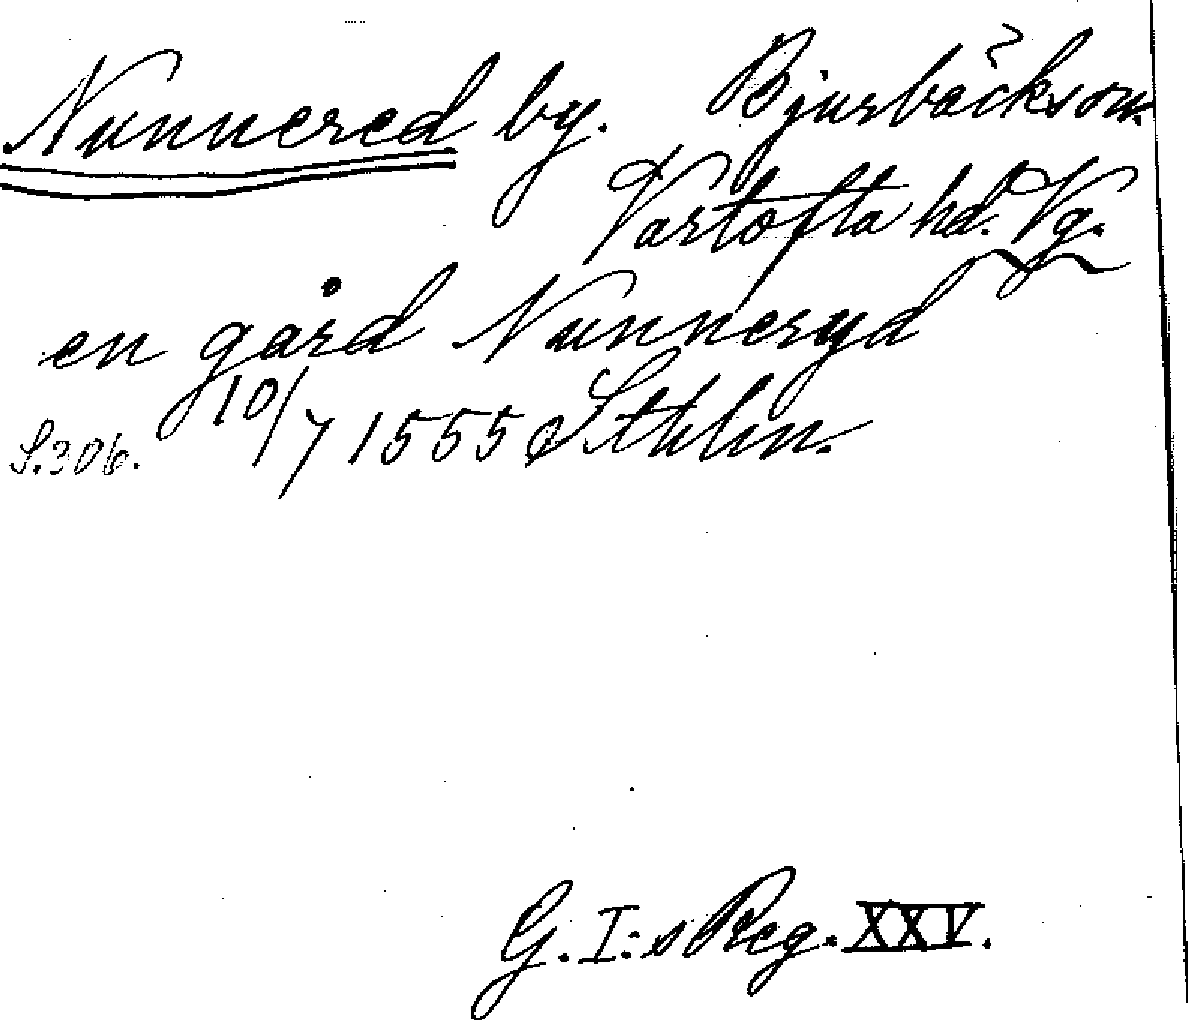 Nunnered by. Bjurbäck sn.
Vartofta hd. Vg.
en gård Nunneryd
S. 306. 10/7 1555 Sthlm.
G. I:s Reg. XXV.